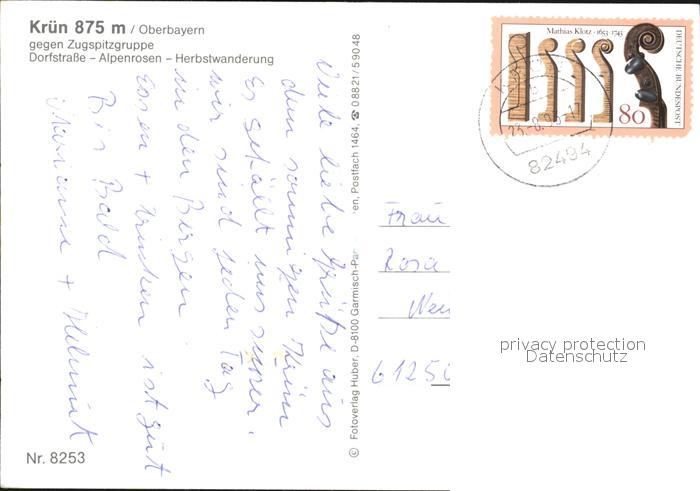 Krün 875 m / Oberbayern
gegen Zugspitzgruppe
Dorfstraße – Alpenrosen – Herbstwanderung
Viele liebe Grüße aus
dem sonnigen Krün
Es gefällt uns super.
wir sind jeden Tag
in den Bergen
Essen + Trinken ist gut
Bis Bald
Marianne + Helmut
Nr. 8253
© Fotoverlag Huber, D-8100 Garmisch-Pa
en, Postfach 1464, ☎ 08821/59048
Mathias Klotz · 1653-1743
DEUTSCHE BUNDESPOST
80
82494
Frau
Rosa
61250
privacy protection
Datenschutz